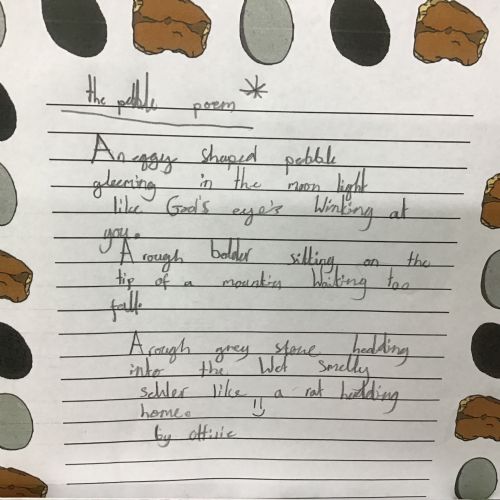 the pebble poem
An eggy shaped pebble
gleeming in the moon light
like God's eye's Winking at
you.
A rough bolder sitting on the
tip of a mountin Waiting too
fall.
A rough grey stone hedding
intor the Wet smelly
like a rat hedding
home.
by